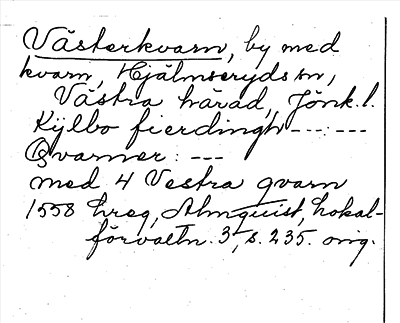 Västerkvarn, by med
kvarn, Hjälmseryds sn,
Västra härad, Jönk. l.
Kylbo fierdingh --- ---
Qvarner: ---
med 4 Vestra qvarn
1558 hreg, Almquist, Lokal-
förvaltn. 3, s. 235. orig.